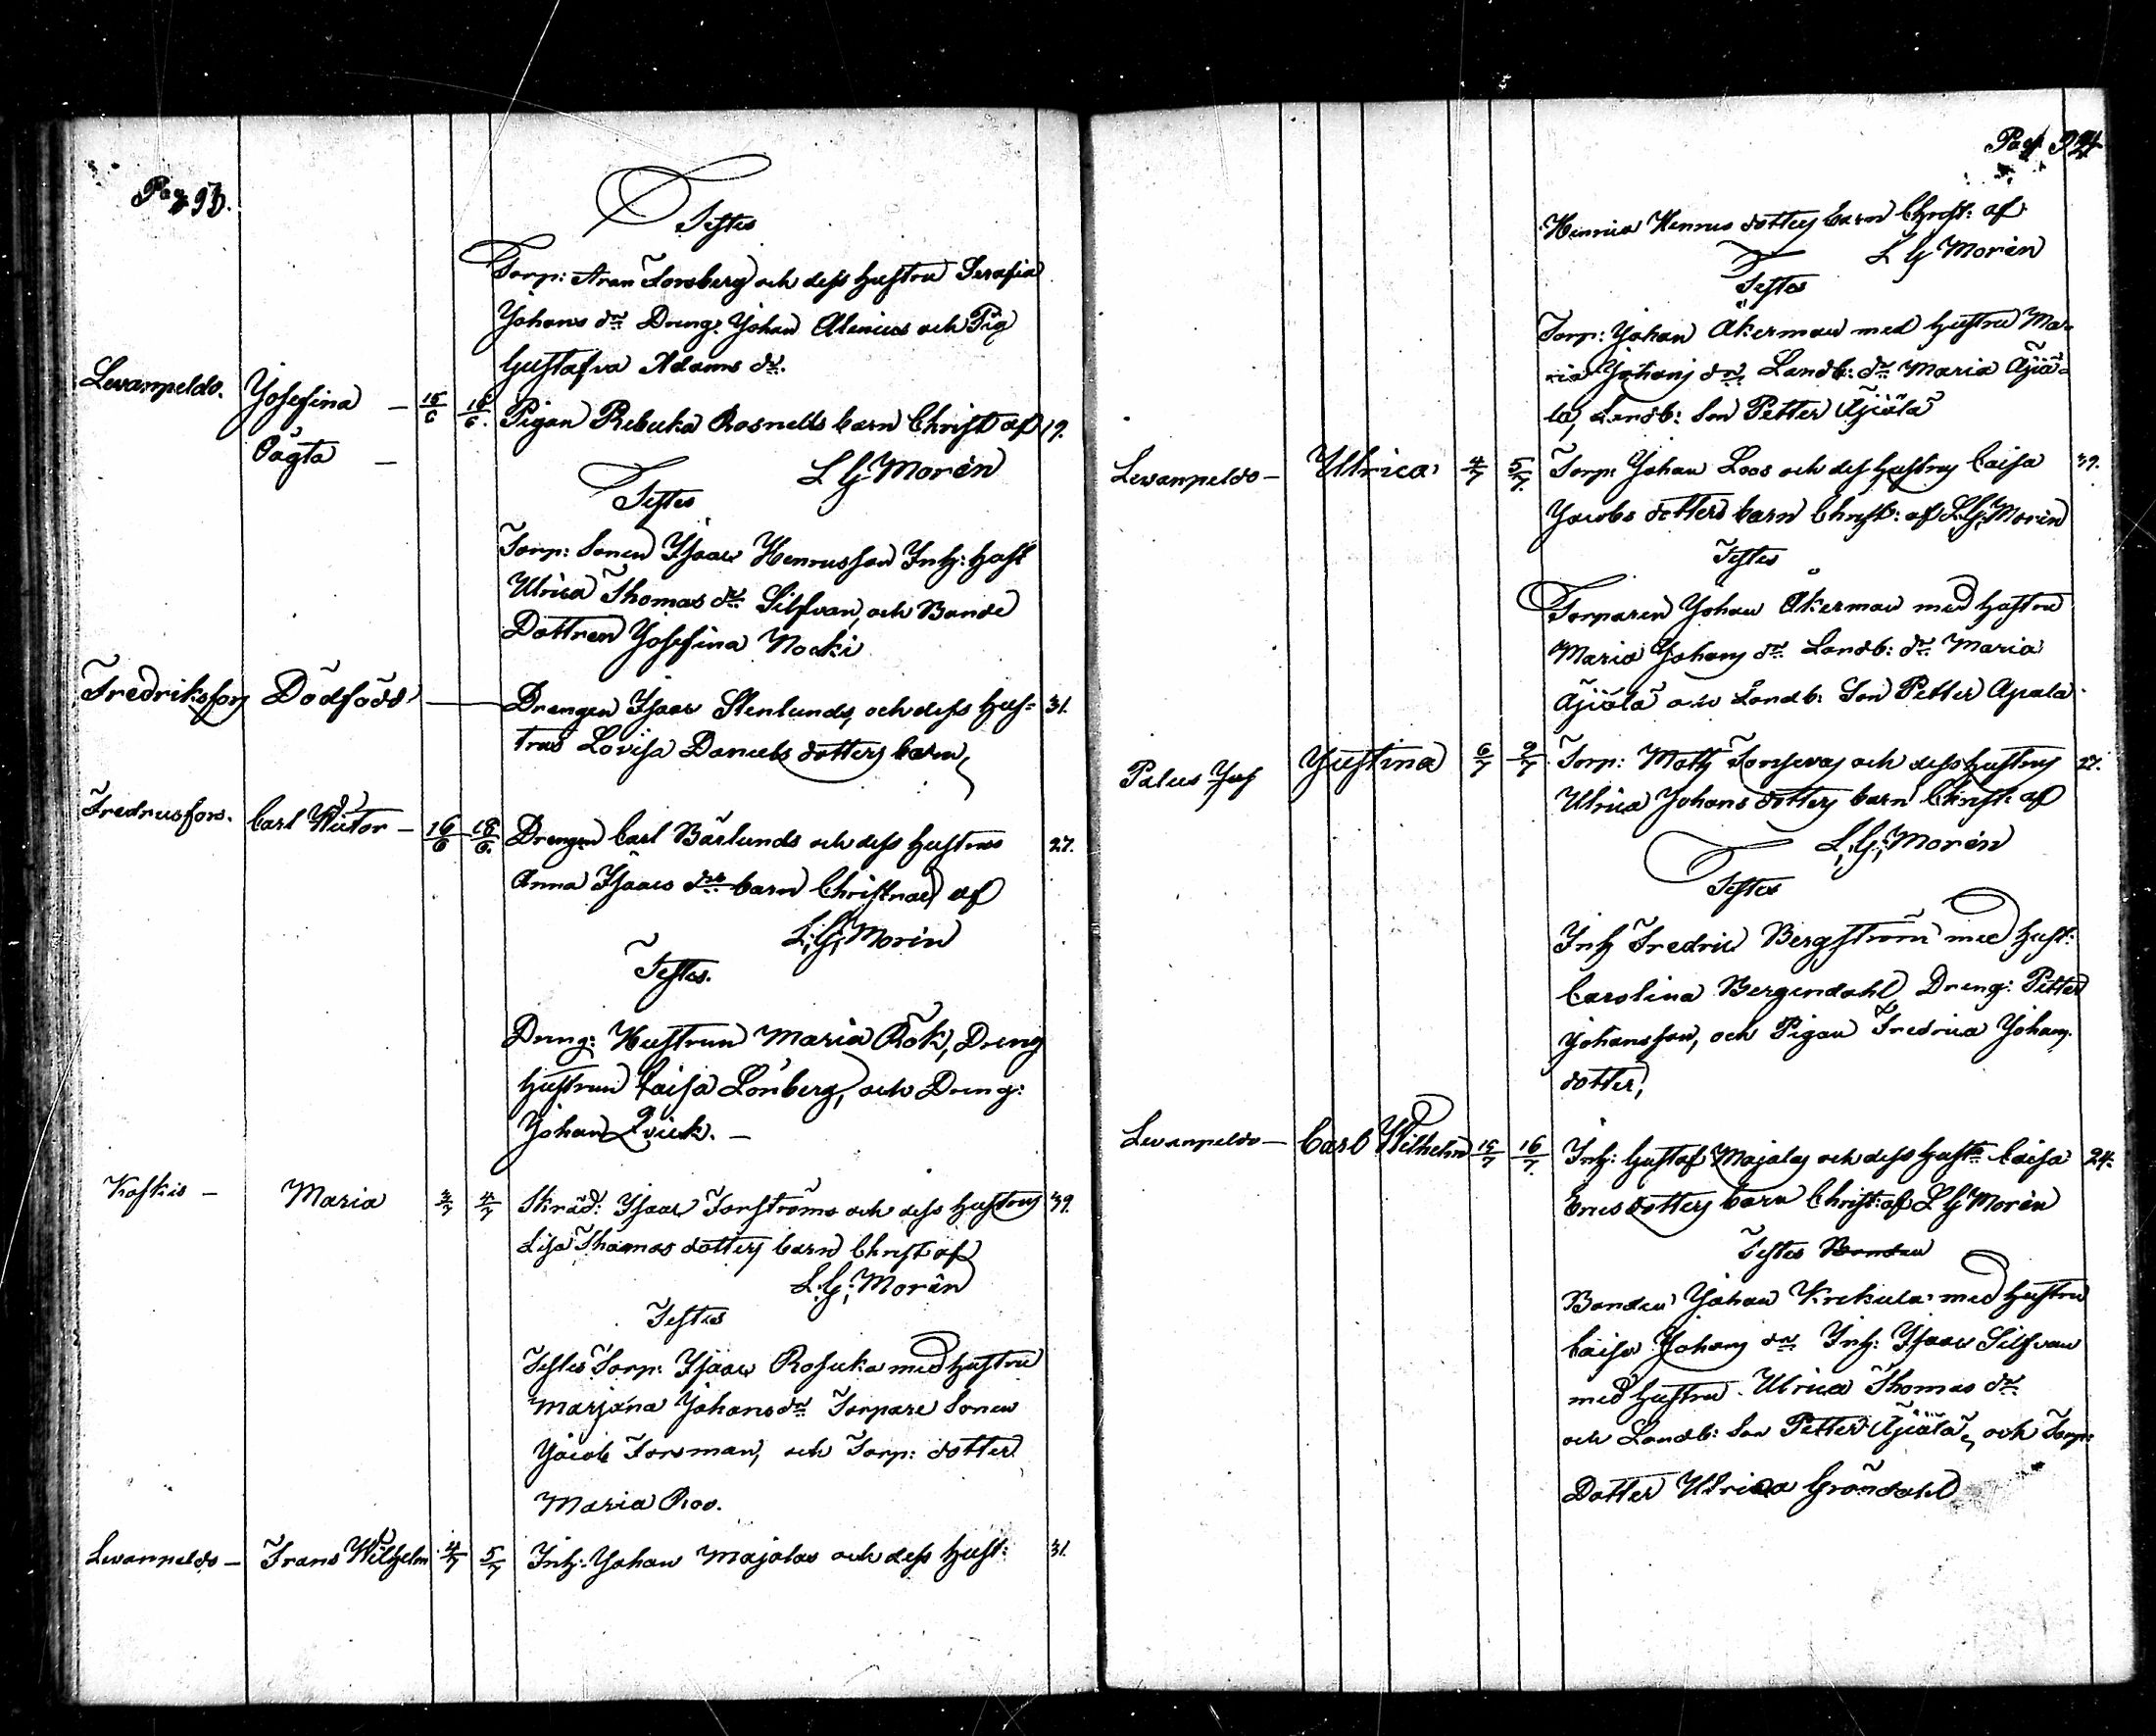 Pag 93.
Testes
Torp: Aron Forsberg och dess hustru Serafia
Johans dr Dreng: Johan Alenius och Pig
Gustafva Adams dr.
Levanpeldo. Josefina — 15/6 18/6. Pigan Rebecka Rosnells barn Christ af 19.
Oägta —
L G Morén
Testes
Torp: Sonen Isaac Henricsson Inh: Hust
Ulrica Thomas dr Silfvan, och Bonde
Dottren Josefina Nocki
Fredriksfors Dödfödd — Drengen Isaac Stenlunds, och dess hus= 31.
trus Lovisa Daniels dotters barn
Fredricsfors. Carl Victor — 16/6 18/6. Drengen Carl Bärlunds och dess hustrus 27.
Anna Isaacs drs barn Christnad af
L; G; Morén
Testes.
Dreng: Hustrun Maria Rök, Dreng
hustrun Caisa Lönberg, och Dreng:
Johan Qvick. —
Koskis — Maria 3/7 4/7 Skräd: Isaac Forströms och dess hustrus 39.
Lisa Thomas dotters barn Christ af
L. G; Morén
Testes
Testes Torp: Isaac Rosucka med hustru
Marjana Johans dr Torpare Sonen
Jacob Forsman, och Torp: dotter
Maria Roo.
Levanpeldo — Frans Wilhelm 4/7 5/7 Inh: Johan Majalas och dess hust: 31.
Pag 94
Henrica Henrics dotters barn Christ: af
L G Morén
Testes
Torp: Johan Åkerman med hustru Ma-
ria Johans dr Landb: dr Maria Äjiä-
lä, Landb: Son Petter Äjiälä
Levanpeldo — Ulrica 4/7 5/7. Torp: Johan Loos och dess hustrus Caisa 39.
Jacobs dotters barn Christ: af L. G; Morén
Testes
Torparen Johan Åkerman med hustru
Maria Johans dr Landb: dr Maria
Äjiälä och Landb: Son Petter Äjiälä
Palus Justina 6/7 9/7. Torp: Matts och dess hustrus 27.
Ulrica Johans dotters barn Christ: af
L; G; Morén
Testes
Inh Fredric Bergström med hust:
Carolina Bergendahl, Dreng: Petter
Johansson, och Pigan Fredrica Johans
dotter,
Levanpeldo — Carl Wilhelm 15/7 16/7. Inh: Gustaf Majalas och dess hustr Caisa 24.
Erics dotters barn Christ: af L G Morén
Testes Bonden
Bonden Johan Krekula med hustru
Caisa Johans dr Inh: Isaac Silfvan
med hustru Ulrica Thomas dr
och Landb: Son Petter Äjiälä, och Torp:
Dotter Ulrica Gröndahl